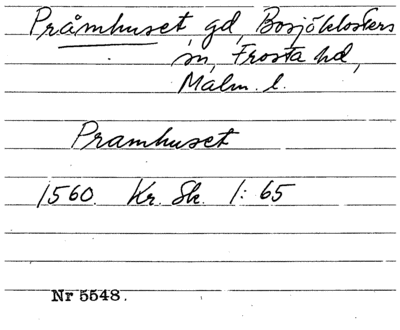 Pråmhuset, gd, Bosjöklosters
sn, Frosta hd,
Malm. l.
Pramhuset
1560. Kr. Sk. 1: 65
Nr 5548.